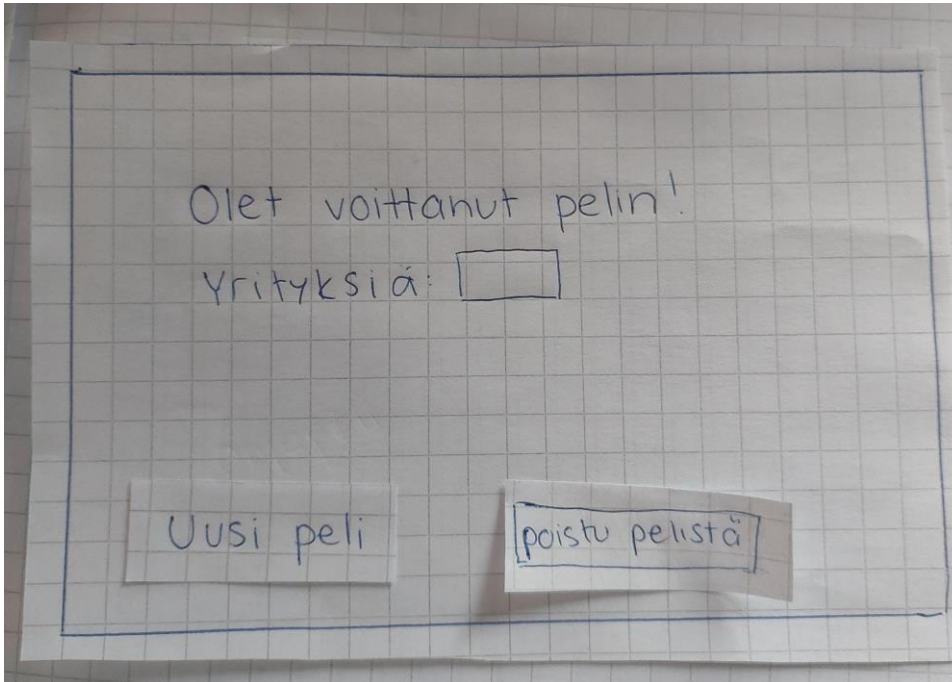 Olet voittanut pelin!
Yrityksiä:
Uusi peli
poistu pelistä